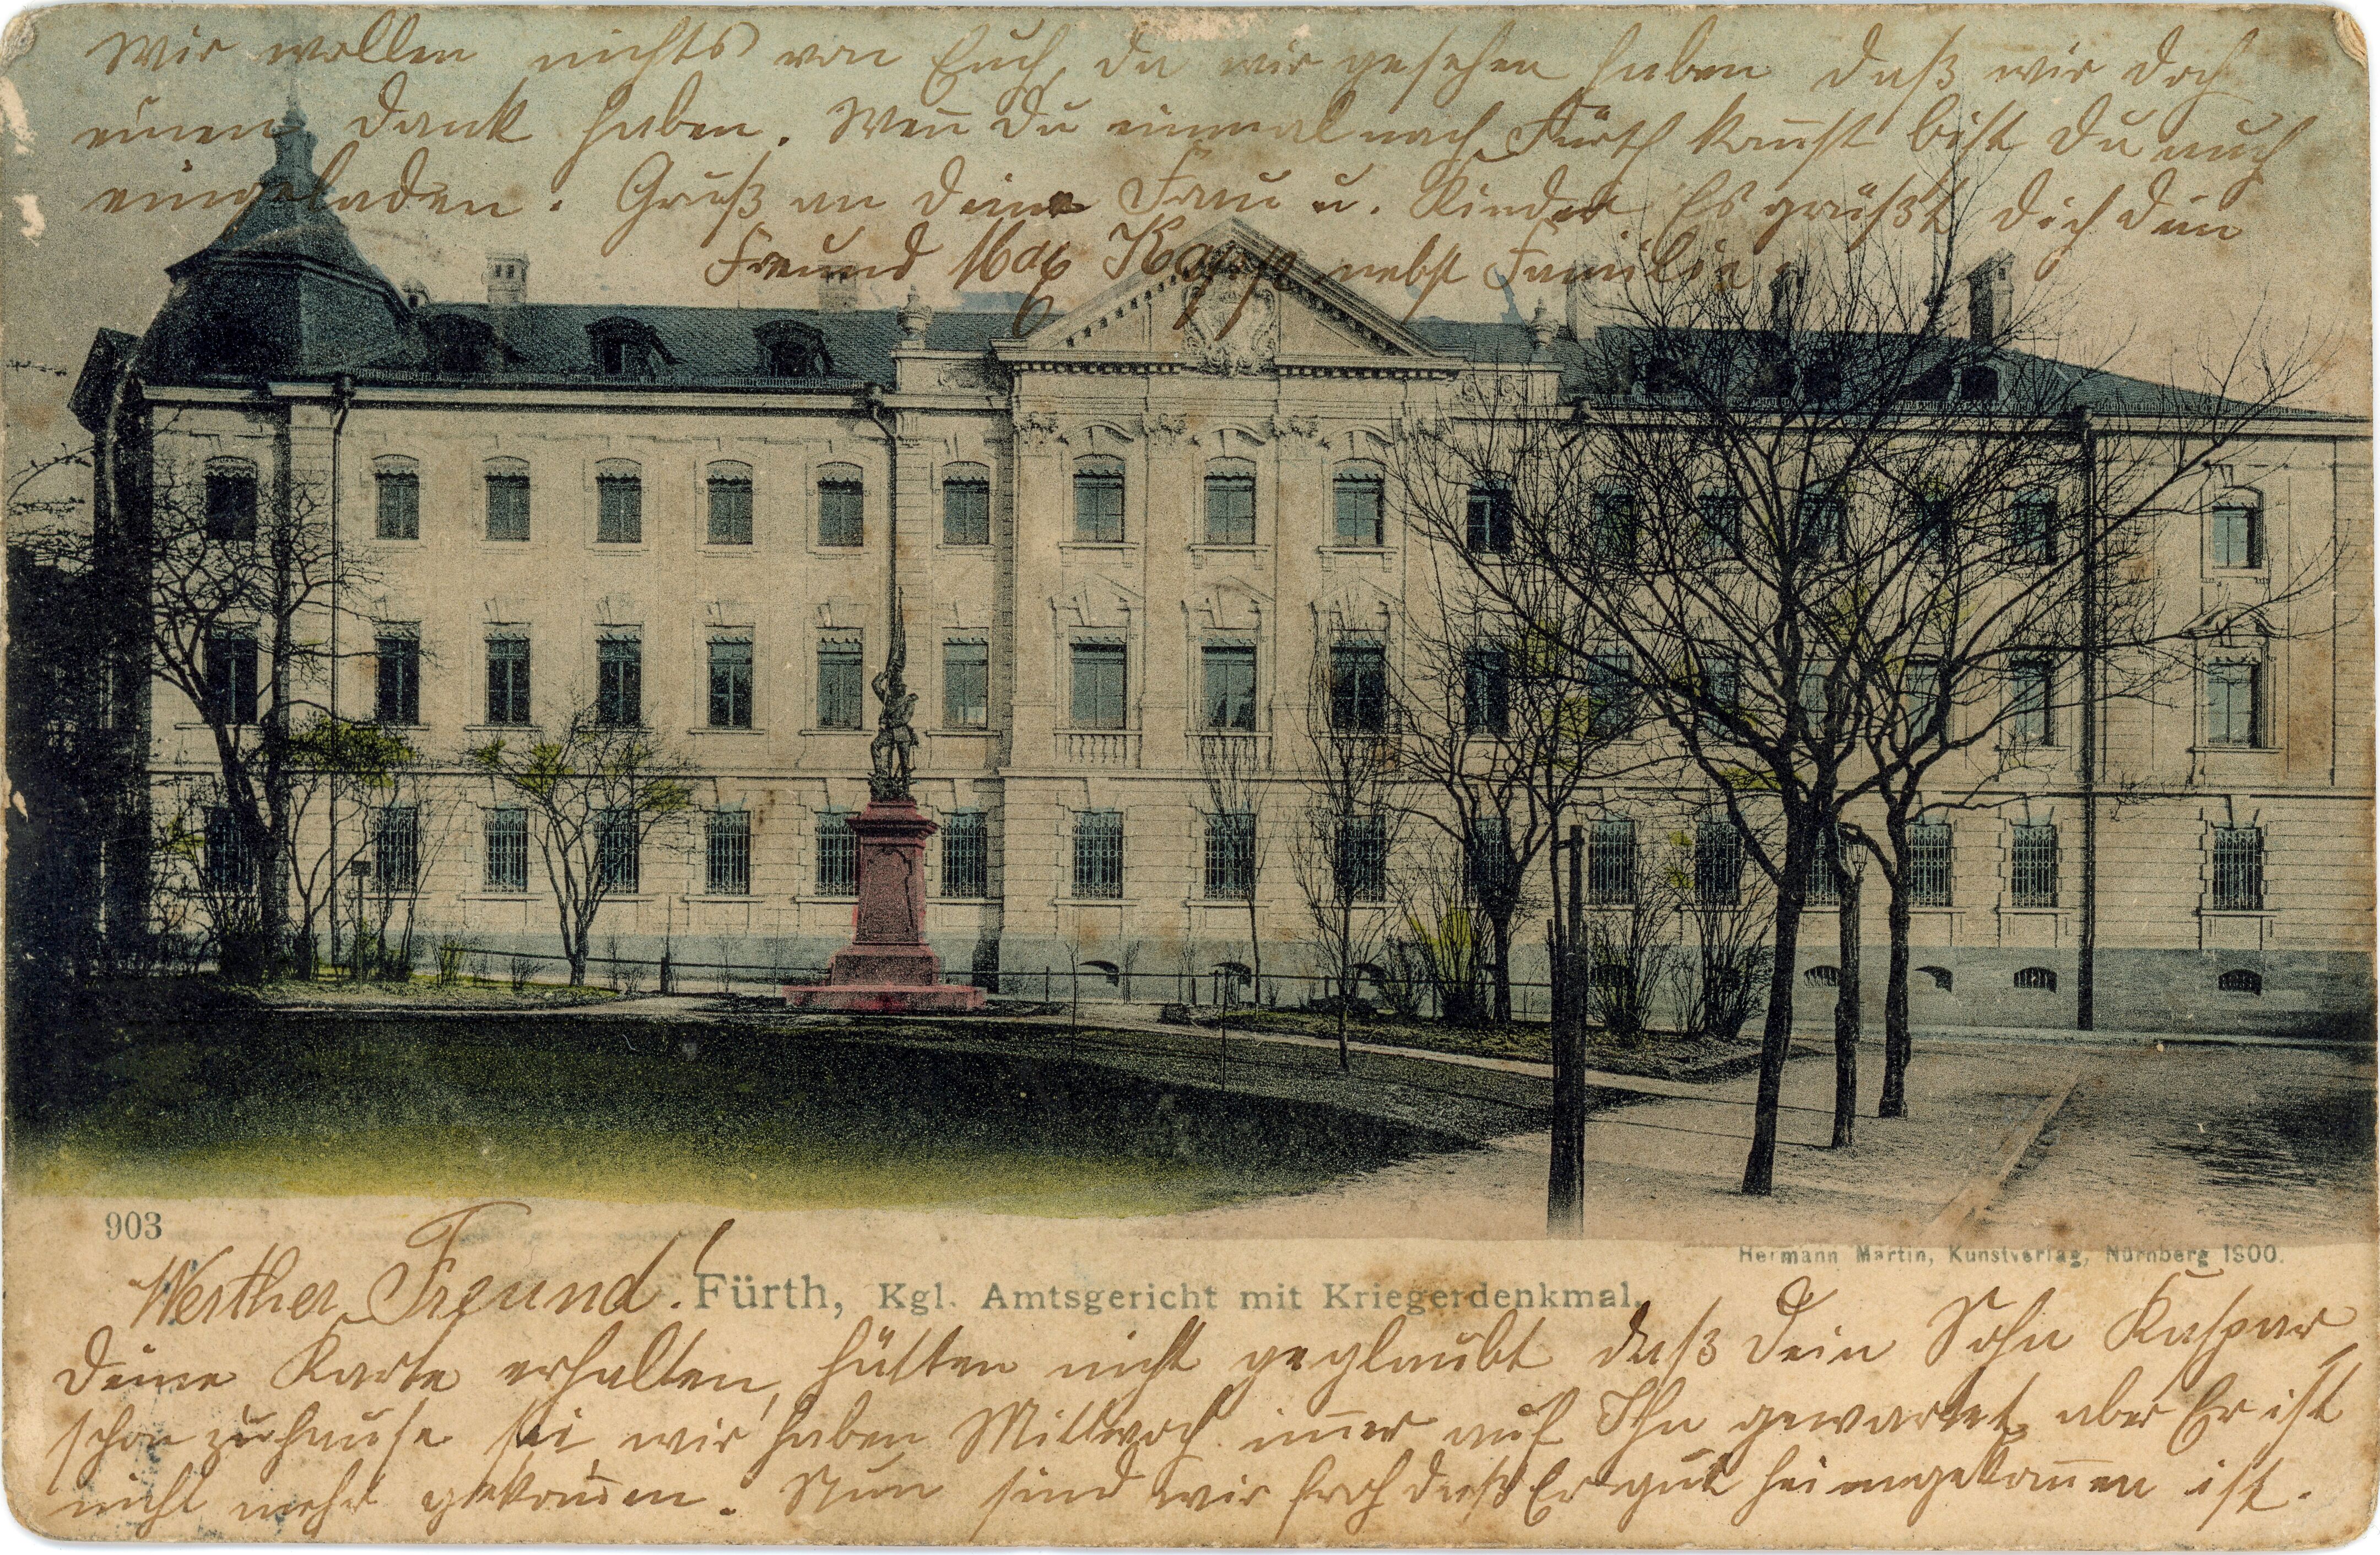 Wir wollen nichts von Euch, da wir gesehen haben daß wir doch
einen Dank haben. Wen̄ Du einmal nach Fürth kom̄st bist Du auch
eingeladen. Gruß an Deine Frau u. Kinder. Es grüßt Dich Dein
Freund Max Kappe nebst Familie.
903
Hermann Martin, Kunstverlag, Nürnberg 1900.
Werther Freund!
Fürth, Kgl. Amtsgericht mit Kriegerdenkmal.
Deine Karte erhalten, hätten nicht geglaubt daß Dein Sohn Kaspar,
schon zuhause sei wir haben Mittwoch im̄er auf Ihn gewartet, aber Er ist
nicht mehr gekom̄en. Nun sind wir froh daß Er gut heimgekom̄en ist.